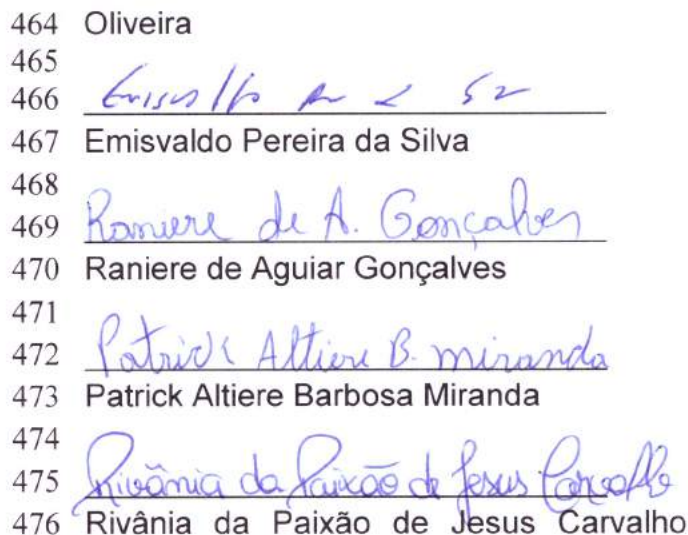 464 Oliveira
465
466
467 Emisvaldo Pereira da Silva
468
469 Raniere de A. Gonçalves
470 Raniere de Aguiar Gonçalves
471
472 Patrick Altiere B. miranda
473 Patrick Altiere Barbosa Miranda
474
475 Rivânia da Paixão de Jesus Carvalho
476 Rivânia da Paixão de Jesus Carvalho